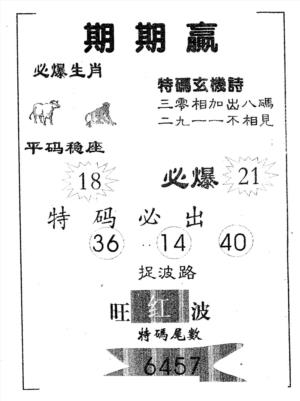 期期赢
必爆生肖
特碼玄機詩
三零相加出八碼
二九一一不相見
平码稳座
18
必爆 21
特码必出
36 14 40
捉波路
旺红波
特碼尾數
6457